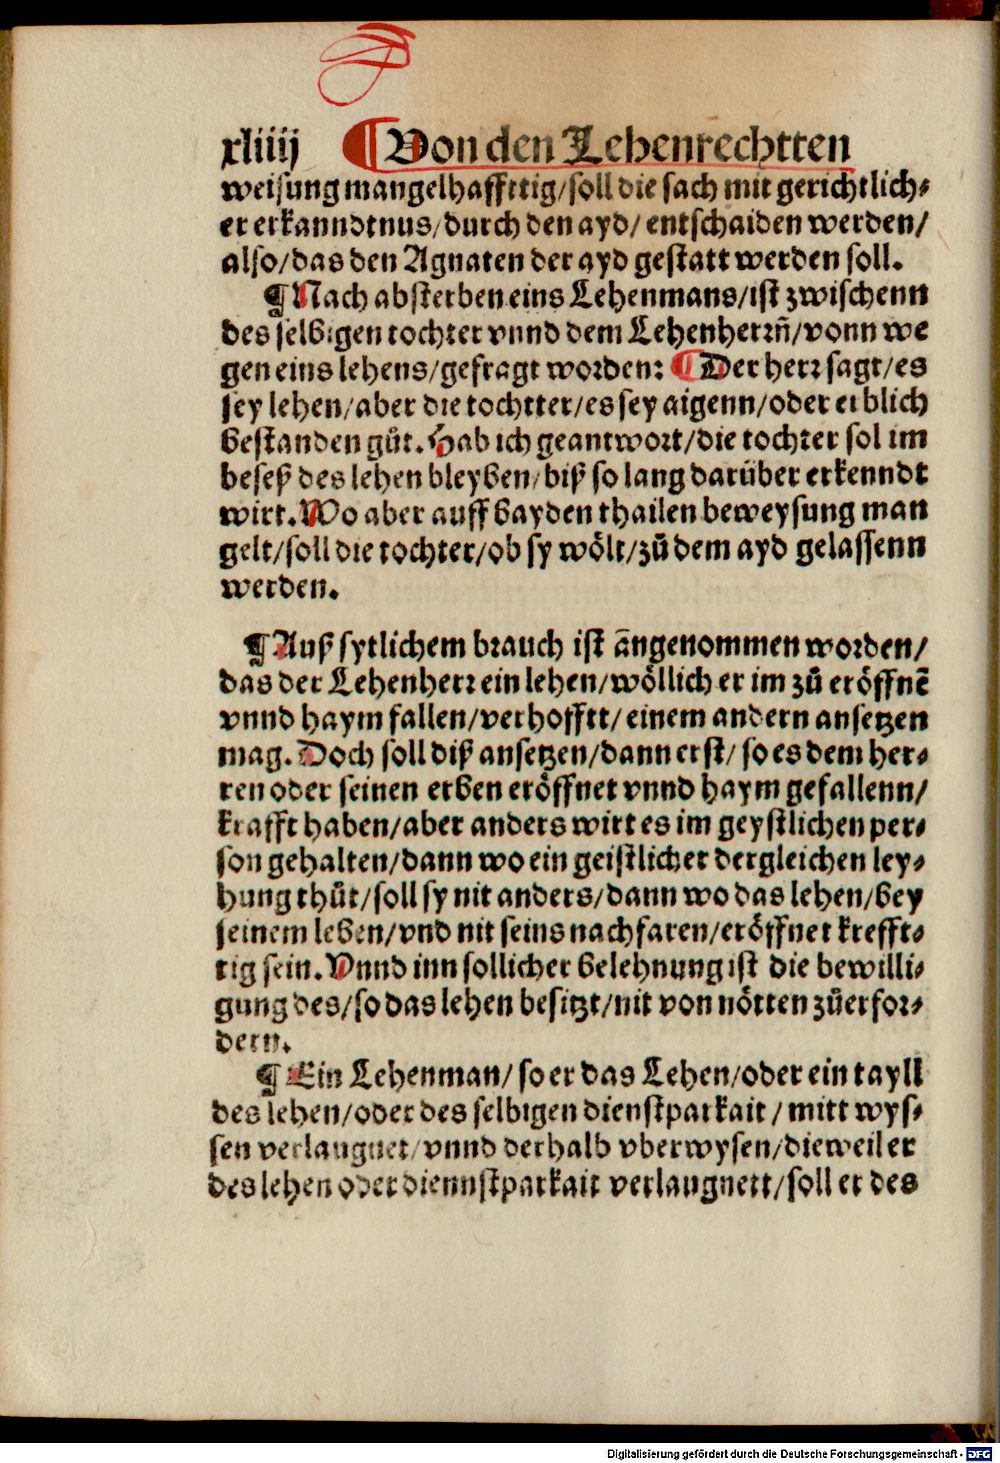 xliiij ¶ Von den Lehenrechtten
weisung mangelhafftig/soll die sach mit gerichtlich⸗
er erkanndtnus/durch den ayd/ entschaiden werden/
also/das den Agnaten der ayd gestatt werden soll.
¶ Nach absterben eins Lehenmans/ist zwischenn
des selbigen tochter vnnd dem Lehenherrn̄/vonn we
gen eins lehens/gefragt worden: ¶ Der herr sagt/es
sey lehen/aber die tochtter/es sey aigenn/oder erblich
bestanden gůt. Hab ich geantwort/die tochter sol im
beseß des lehen bleyben/biß so lang darüber erkenndt
wirt. Wo aber auff bayden thailen beweysung man
gelt/soll die tochter/ob sy wölt/zů dem ayd gelassenn
werden.
¶ Auß sytlichem brauch ist āngenommen worden/
das der Lehenherr ein lehen/wöllich er im zů eröffnē
vnnd haym fallen/verhofft/ einem andern ansetzen
mag. Doch soll diß ansetzen/dann erst/ so es dem her⸗
ren oder seinen erben eröffnet vnnd haym gefallenn/
krafft haben/aber anders wirt es im geystlichen per⸗
son gehalten/dann wo ein geistlicher dergleichen ley⸗
hung thůt/soll sy nit anders/dann wo das lehen/bey
seinem leben/vnd nit seins nachfaren/eröffnet krefft⸗
tig sein. Vnnd inn sollicher belehnung ist die bewilli⸗
gung des/so das lehen besitzt/nit von nötten zůerfor⸗
dern.
¶ Ein Lehenman/ so er das Lehen/oder ein tayll
des lehen/oder des selbigen dienstparkait / mitt wys⸗
sen verlaugnet/vnnd derhalb vberwysen/dieweil er
des lehen oder diennstparkait verlaugnett/soll er des
Digitalisierung gefördert durch die Deutsche Forschungsgemeinschaft - DFG